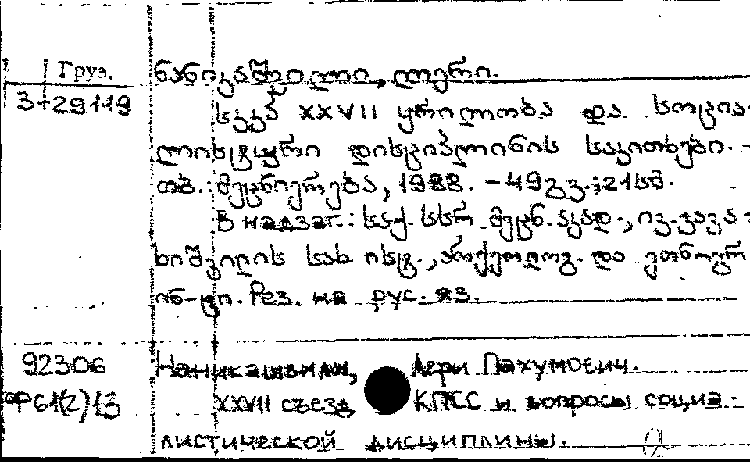 Груз.
ნანიკაშვილი, ლერი.
3-29119
სკკპ XXVII ყრილობა და სოცია-
ლისტური დისციპლინის საკითხები. -
თბ.: მეცნიერება, 1988. - 49გვ.; 21სმ.
В надзаг.: საქ. სსრ მეცნ. აკად., ივ. ჯავა-
ხიშვილის სახ. ისტ., არქეოლოგ. და ეთნოგრ.
ინ-ტი. Рез. на рус. яз.
92306
Наникашвили, Лери Пахумович.
ФР61(2)13
XXVII съезд КПСС и вопросы социа-
листической дисциплины.